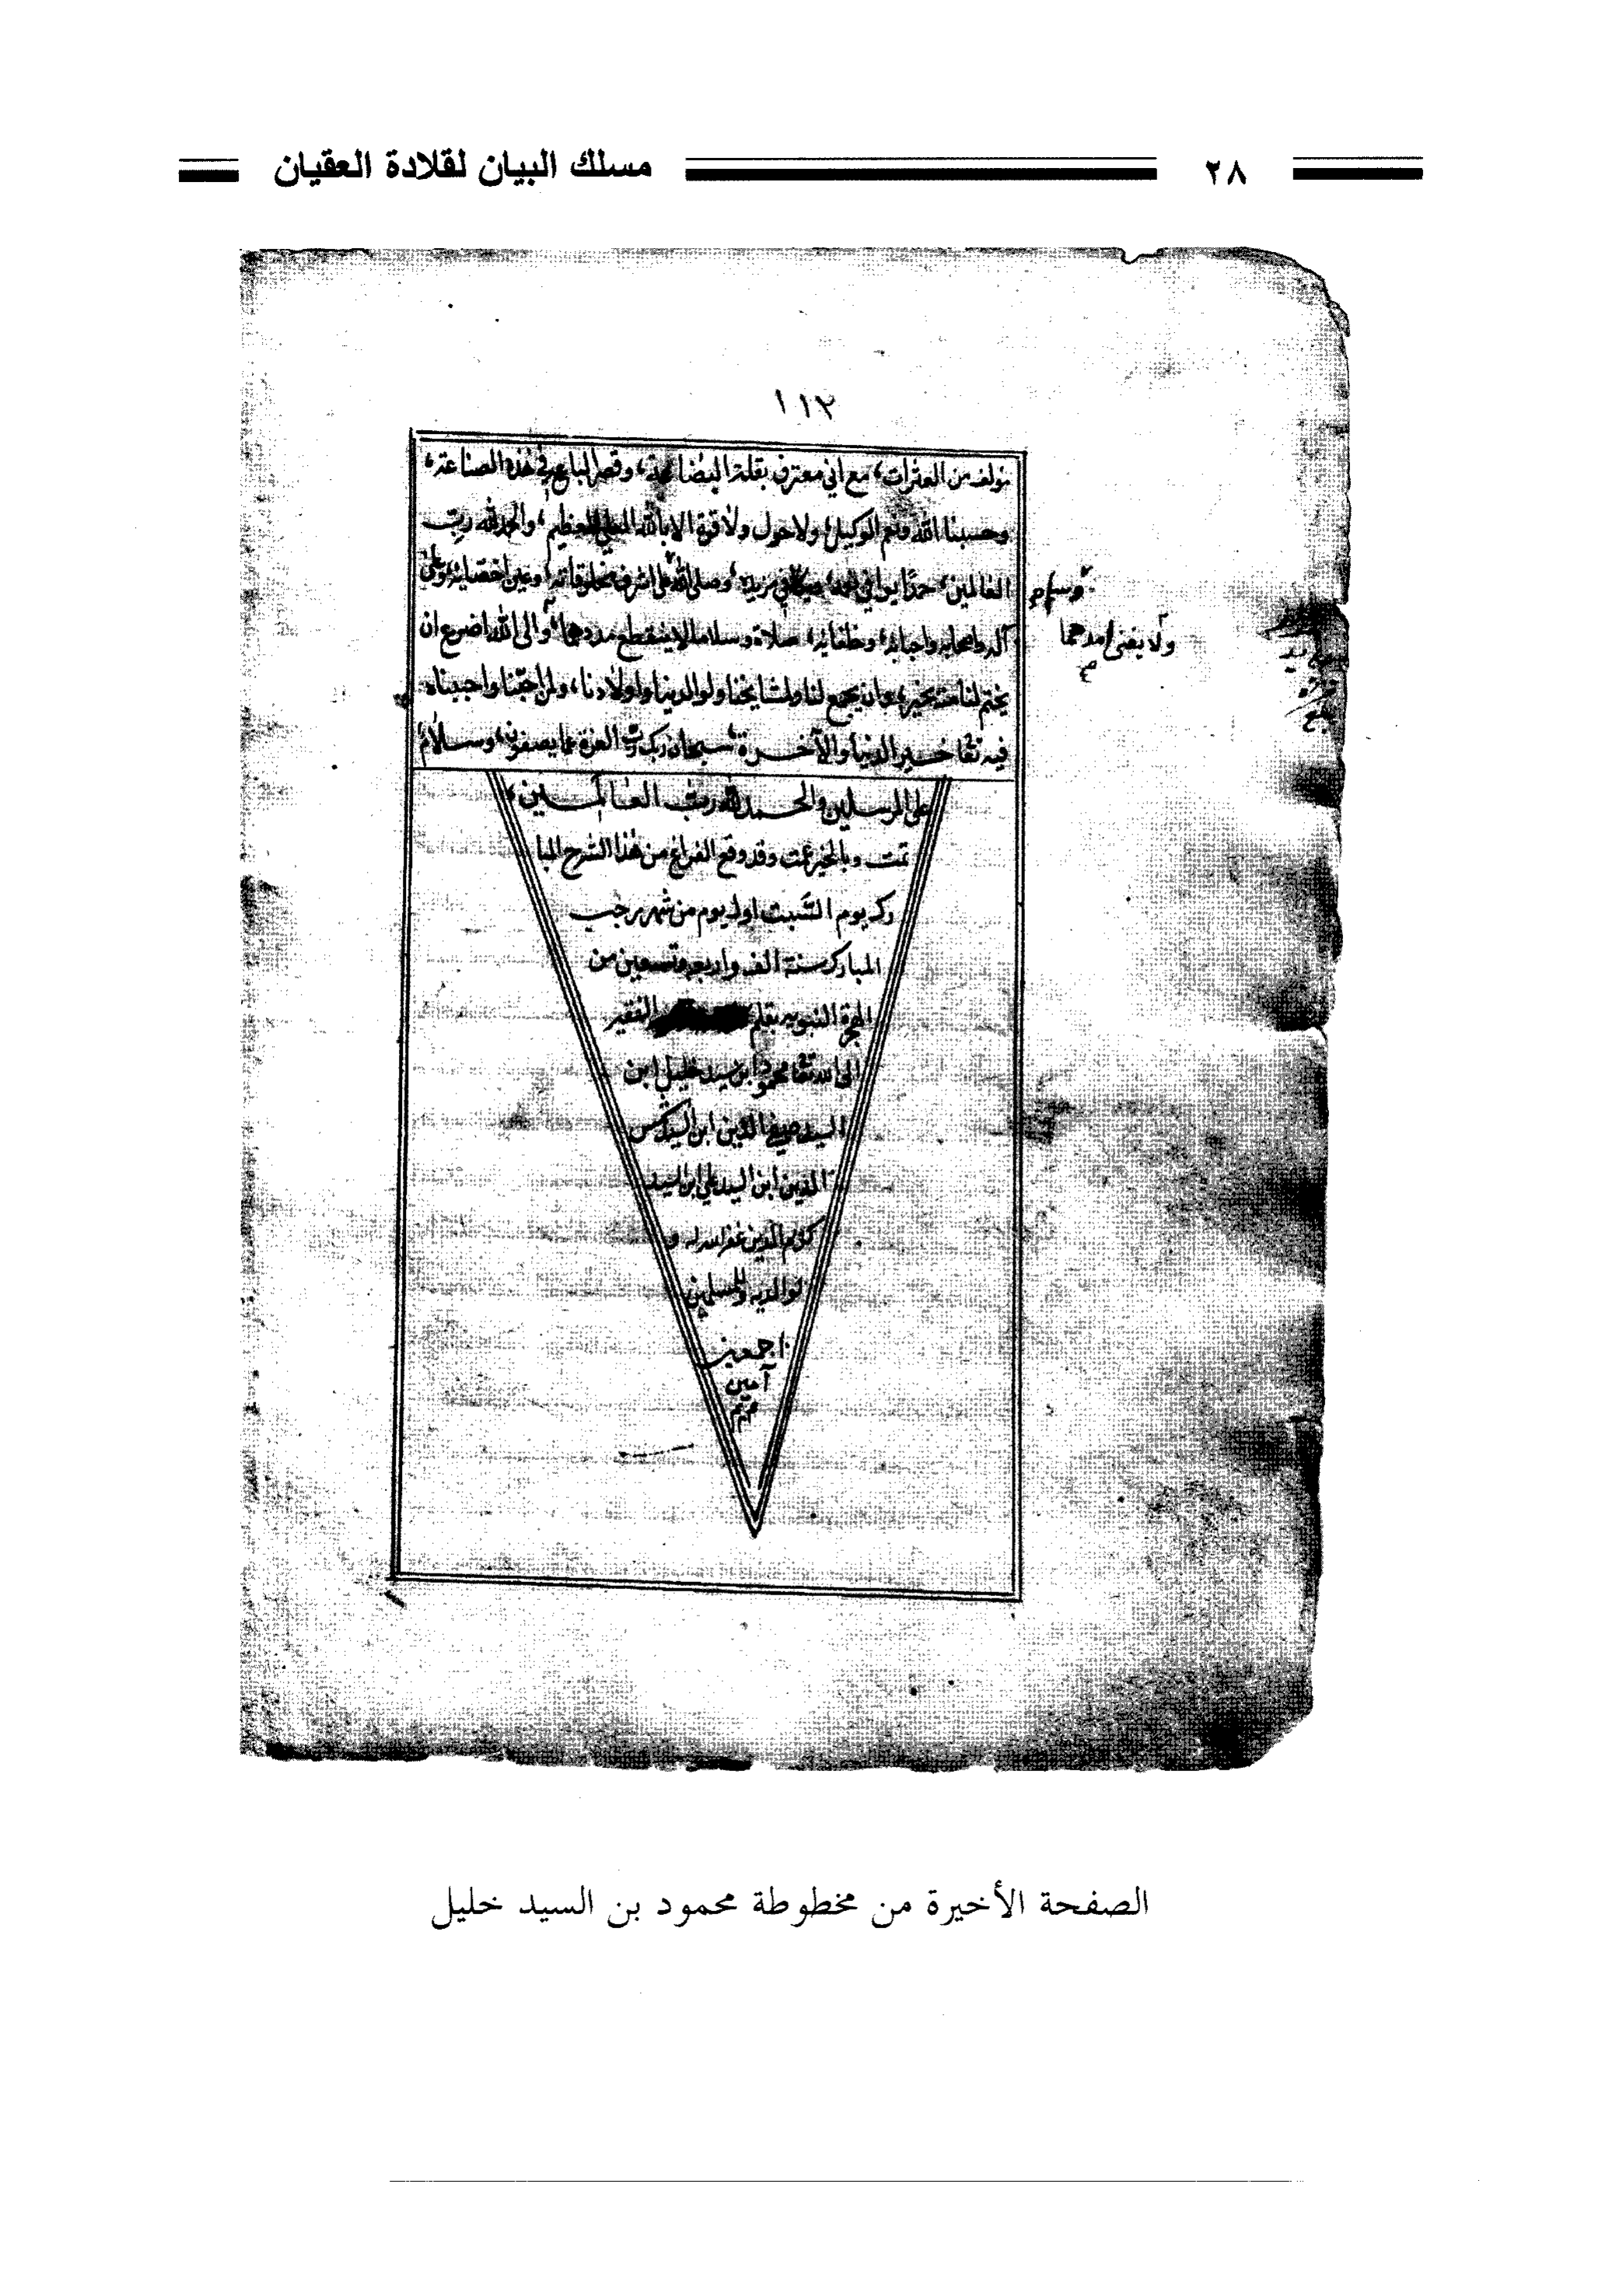 ٢٨
مسلك البيان لقلادة العقيان
١١٢
مؤلف من العثرات، مع اني معترف بقلة البضاعة، وقصر الباع في هذه الصناعة،
وحسبنا الله ونعم الوكيل، ولا حول ولا قوة الا بالله العلي العظيم، والحمد لله رب
العالمين، حمدًا يوافي نعمه ويكافي مزيده، وصلى الله على اشرف مخلوقاته، وعين اختصاصه، وعلى
آله واصحابه واحبابه، وخلفايه، صلاة وسلاما لا ينقطع مددهما، والى الله اضرع ان
يختم لنا منه بخير، وان يجمع لنا ولمشايخنا ولوالدينا ولاولادنا، ولمن احبنا واحببناه
فيه تعا خير الدنيا والآخرة، سبحان ربك رب العزة عما يصفون، وسلام
وسلم
ولا يفنى امدهما
صح
على المرسلين والحمد لله رب العالمين،
تمت وبالخير عمت وقد وقع الفراغ من هذا الشرح المبا
رك يوم السبت اول يوم من شهر رجب
المبارك سنة الف واربعه وتسعين من
الهجرة النبويه بقلم الفقير
الى الله تعا محمود ابن سيد خليل ابن
السيد صفي الدين ابن السيد شمس
الدين ابن السيد علي ابن السيد
كريم الدين غفر الله له و
لوالديه وللمسلمين
اجمعين
آمين
الصفحة الأخيرة من مخطوطة محمود بن السيد خليل